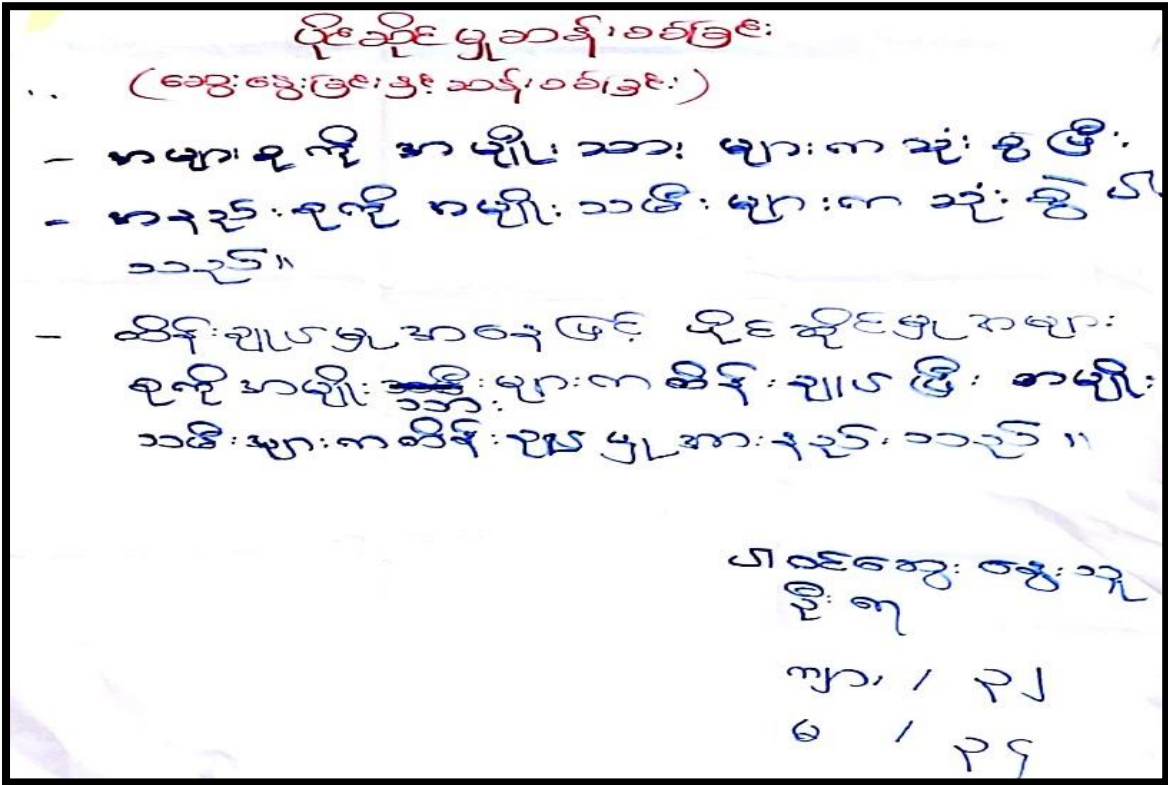 ပိုင်ဆိုင်မှုဆန်းစစ်ခြင်း
(ဆွေးနွေးခြင်းနှင့်ဆန်းစစ်ခြင်း)
- အများစုကို အမျိုးသားများကသုံးစွဲပြီး
- အနည်းစုကို အမျိုးသမီးများက သုံးစွဲပါ
သည်။
- ထိန်းချုပ်မှုအနေဖြင့် ပိုင်ဆိုင်မှုအများ
စုကိုအမျိုးသားများကထိန်းချုပ်ပြီး အမျိုး
သမီးများကထိန်းချုပ်မှုအားနည်းသည်။
ပါဝင်ဆွေးနွေးသူ
ဦးရေ
ကျား / ၃၂
မ / ၃၄